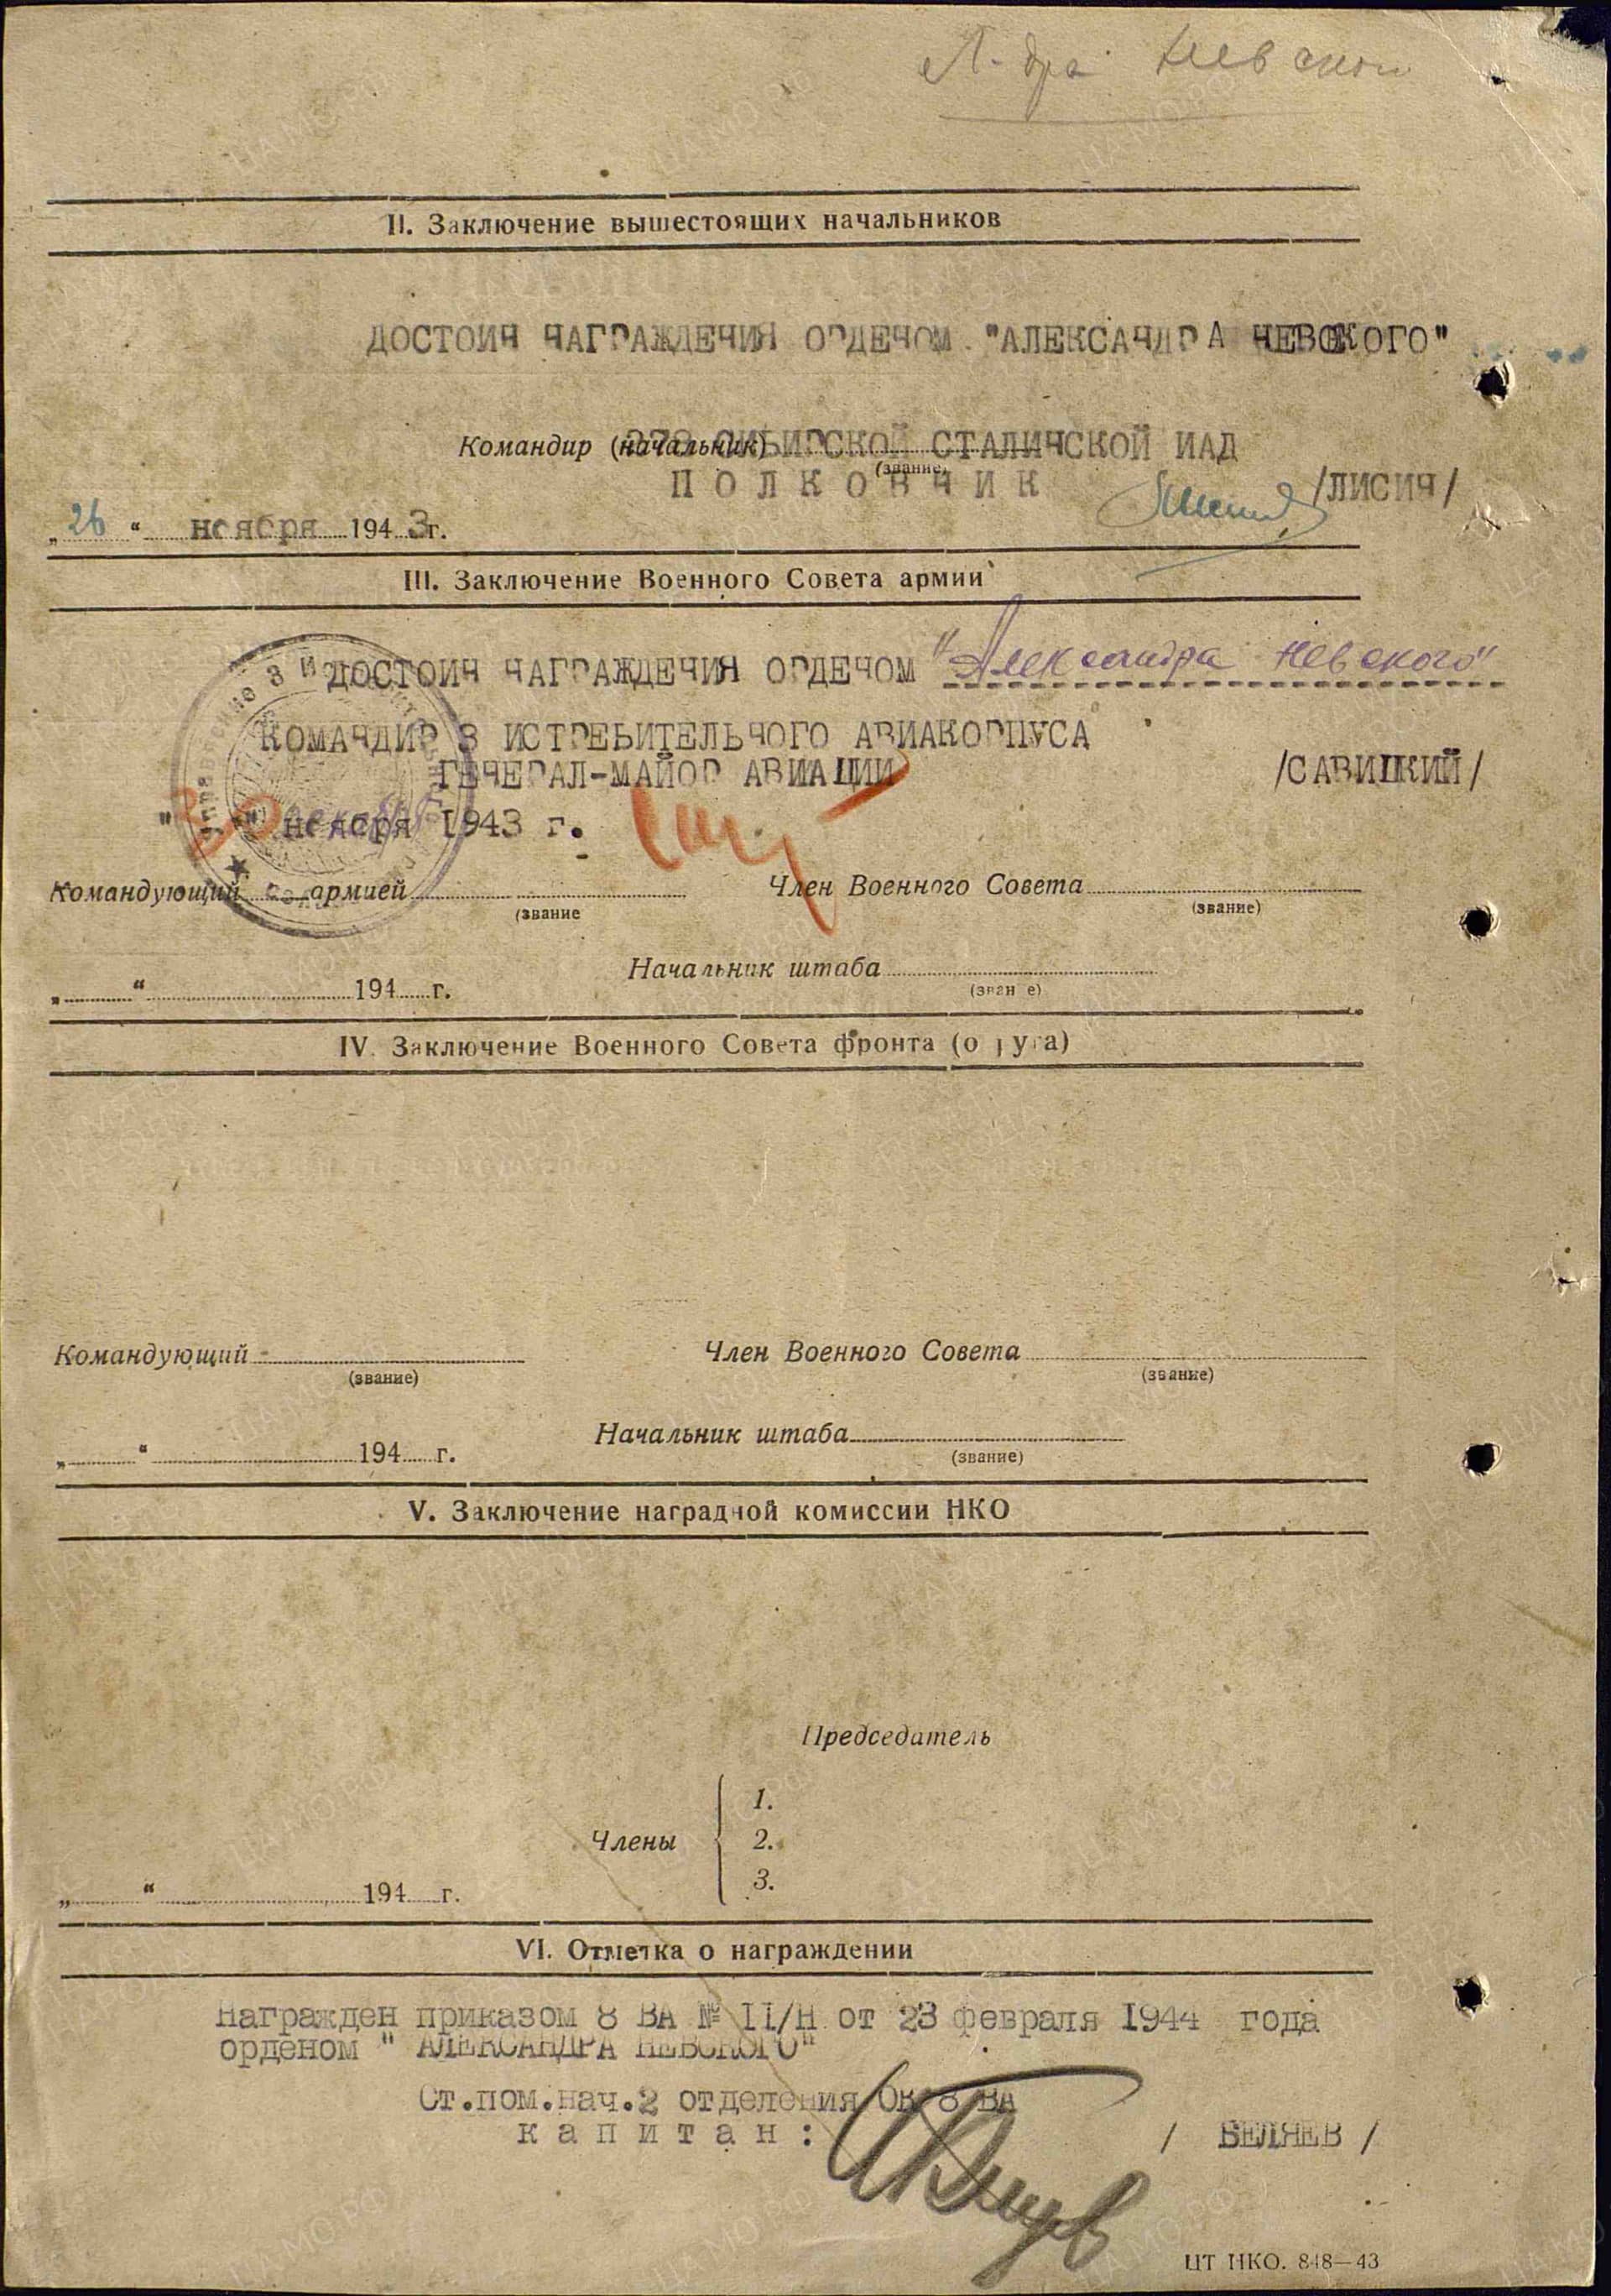 А-дра Невского
II. Заключение вышестоящих начальников
ДОСТОИН НАГРАЖДЕНИЯ ОРДЕНОМ "АЛЕКСАНДРА НЕВСКОГО"
Командир (начальник) 278 СИБИРСКОЙ СТАЛИНСКОЙ ИАД
(звание)
ПОЛКОВНИК /ЛИСИН/
„26“ ноября 1943г.
III. Заключение Военного Совета армии
ДОСТОИН НАГРАЖДЕНИЯ ОРДЕНОМ "Александра Невского"
КОМАНДИР 3 ИСТРЕБИТЕЛЬНОГО АВИАКОРПУСА
ГЕНЕРАЛ-МАЙОР АВИАЦИИ /САВИЦКИЙ/
" " 1943 г.
Командующий армией Член Военного Совета
(звание (звание)
Начальник штаба
(звание)
„ “ 194 г.
IV. Заключение Военного Совета фронта (округа)
Командующий Член Военного Совета
(звание) (звание)
Начальник штаба
„ “ 194 г. (звание)
V. Заключение наградной комиссии НКО
Председатель
1.
Члены 2.
3.
„ “ 194 г.
VI. Отметка о награждении
Награжден приказом 8 ВА № II/Н от 23 февраля 1944 года
орденом " АЛЕКСАНДРА НЕВСКОГО"
Ст.пом.нач.2 отделения ОК 8 ВА
капитан: / БЕЛЯЕВ /
ЦТ НКО. 848—43